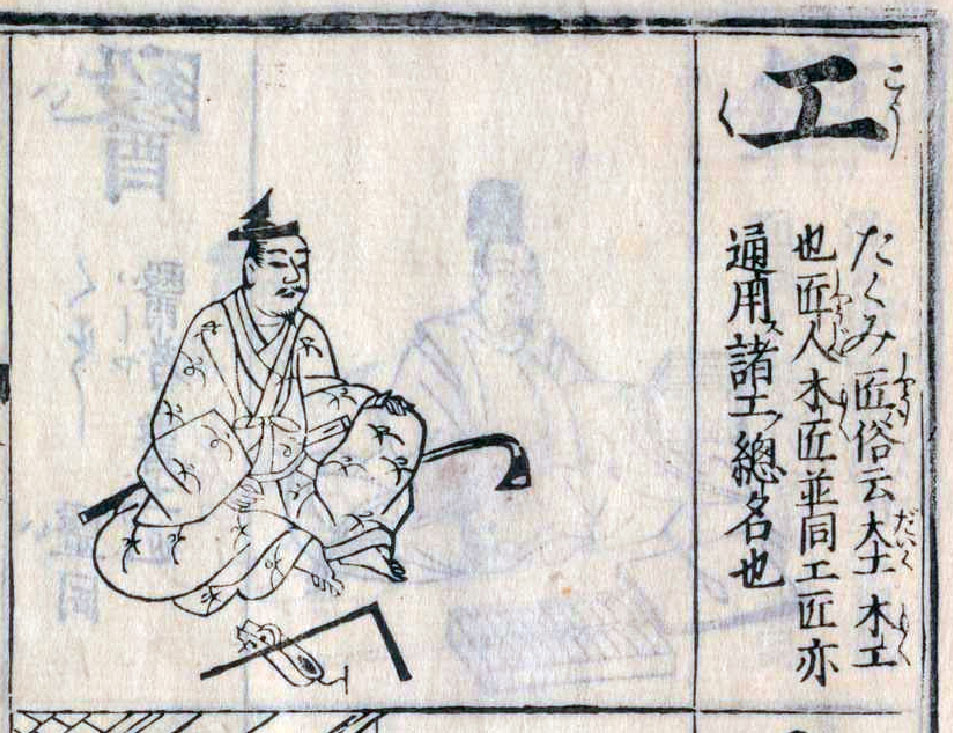 こう
工
く
だいく もく
たくみ匠俗云大工木工
也匠人木匠並同工匠亦
通用ス諸工ノ總名也